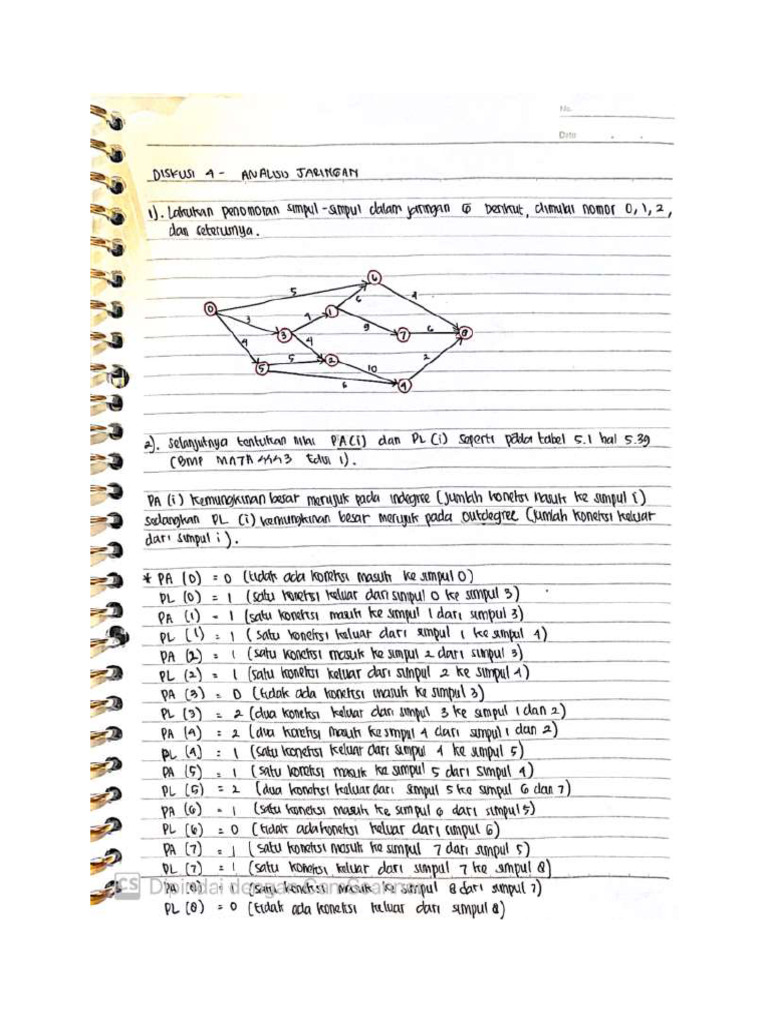 No.
Date
DISKUSI 4 - ANALISIS JARINGAN
1). Lakukan penomoran simpul-simpul dalam jaringan G berikut, dimulai nomor 0, 1, 2,
dan seterusnya.
6
5
0
4
1
6
3
4
9
7
6
8
3
4
4
5
2
10
2
5
6
4
2). Selanjutnya tentukan nilai PA(i) dan PL(i) seperti pada tabel 5.1 hal 5.39
(BMP MATA 4443 Edisi 1).
PA (i) kemungkinan besar merujuk pada indegree (jumlah koneksi masuk ke simpul i)
sedangkan PL (i) kemungkinan besar merujuk pada outdegree (jumlah koneksi keluar
dari simpul i).
* PA (0) = 0 (tidak ada koneksi masuk ke simpul 0)
PL (0) = 1 (satu koneksi keluar dari simpul 0 ke simpul 3)
PA (1) = 1 (satu koneksi masuk ke simpul 1 dari simpul 3)
PL (1) = 1 (satu koneksi keluar dari simpul 1 ke simpul 4)
PA (2) = 1 (satu koneksi masuk ke simpul 2 dari simpul 3)
PL (2) = 1 (satu koneksi keluar dari simpul 2 ke simpul 4)
PA (3) = 0 (tidak ada koneksi masuk ke simpul 3)
PL (3) = 2 (dua koneksi keluar dari simpul 3 ke simpul 1 dan 2)
PA (4) = 2 (dua koneksi masuk ke simpul 4 dari simpul 1 dan 2)
PL (4) = 1 (satu koneksi keluar dari simpul 4 ke simpul 5)
PA (5) = 1 (satu koneksi masuk ke simpul 5 dari simpul 4)
PL (5) = 2 (dua koneksi keluar dari simpul 5 ke simpul 6 dan 7)
PA (6) = 1 (satu koneksi masuk ke simpul 6 dari simpul 5)
PL (6) = 0 (tidak ada koneksi keluar dari simpul 6)
PA (7) = 1 (satu koneksi masuk ke simpul 7 dari simpul 5)
PL (7) = 1 (satu koneksi keluar dari simpul 7 ke simpul 8)
PA (8) = 1 (satu koneksi masuk ke simpul 8 dari simpul 7)
CS Dipindai dengan CamScanner
PL (8) = 0 (tidak ada koneksi keluar dari simpul 8)